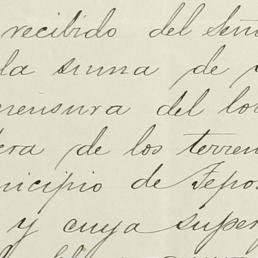 recibido del Seño
la suma de
mensura del lo
era de los terren
nicipio de Tepo
y cuya super